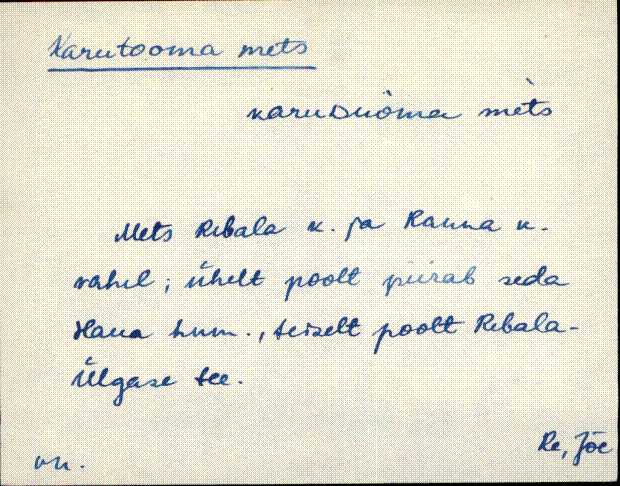 Karutooma mets
karuDuòma mèts
Mets Rebala k. ja Ranna k.
vahel; ühelt poolt piirab seda
Haua hum., teiselt poolt Rebala-
Ülgase tee.
Re, Jõe
vn.